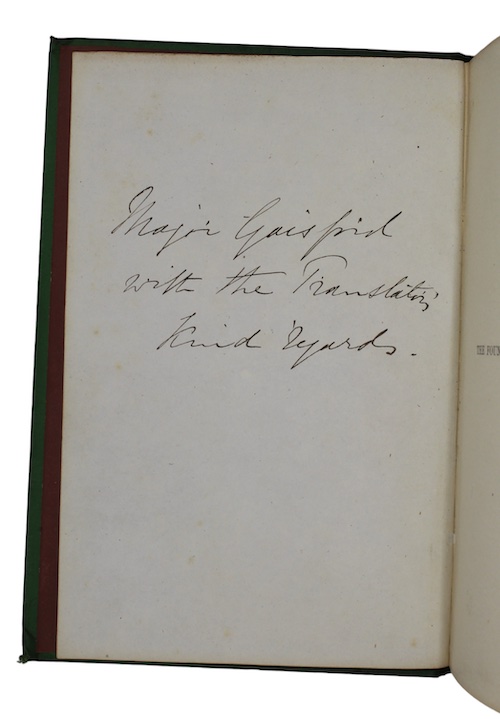 Major Gaisford
with the Translator's
Kind regards.
THE FOUN